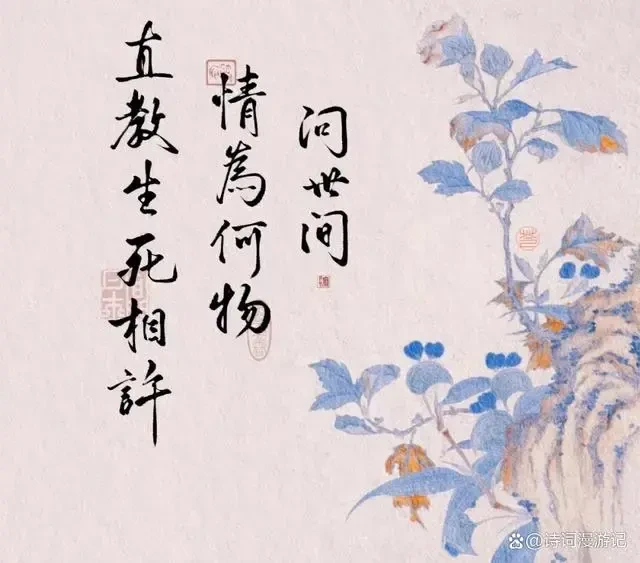 问世间
情為何物
直教生死相許
@诗词漫游记